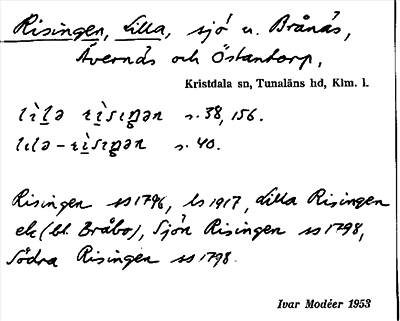 Risingen, Lilla, sjö u. Brånäs,
Ävernäs och Östantorp,
Kristdala sn, Tunaläns hd, Klm. l.
s. 38, 156.
s. 40.
Risingen ss 1796, ls 1917, Lilla Risingen
ek (bl. Bråbo), Sjön Risingen ss 1798,
Södra Risingen ss 1798.
Ivar Modéer 1953